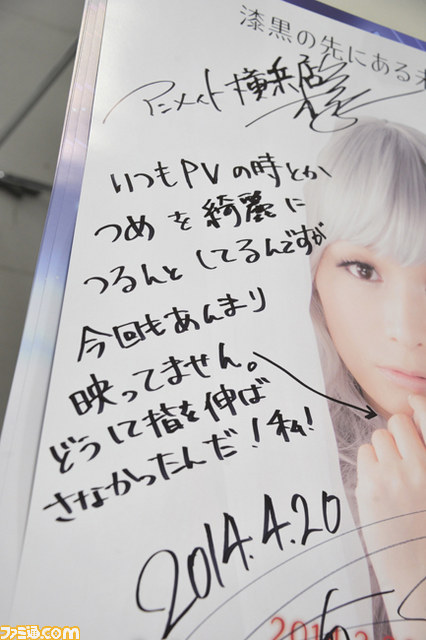 漆黒の先にある
アニメイト横浜店
いつもPVの時とか
つめを綺麗に
つるんとしてるんですが
今回もあんまり
映ってません。
どうして指を伸ば
さなかったんだ!私!
2014.4.20
201
ファミ通.com